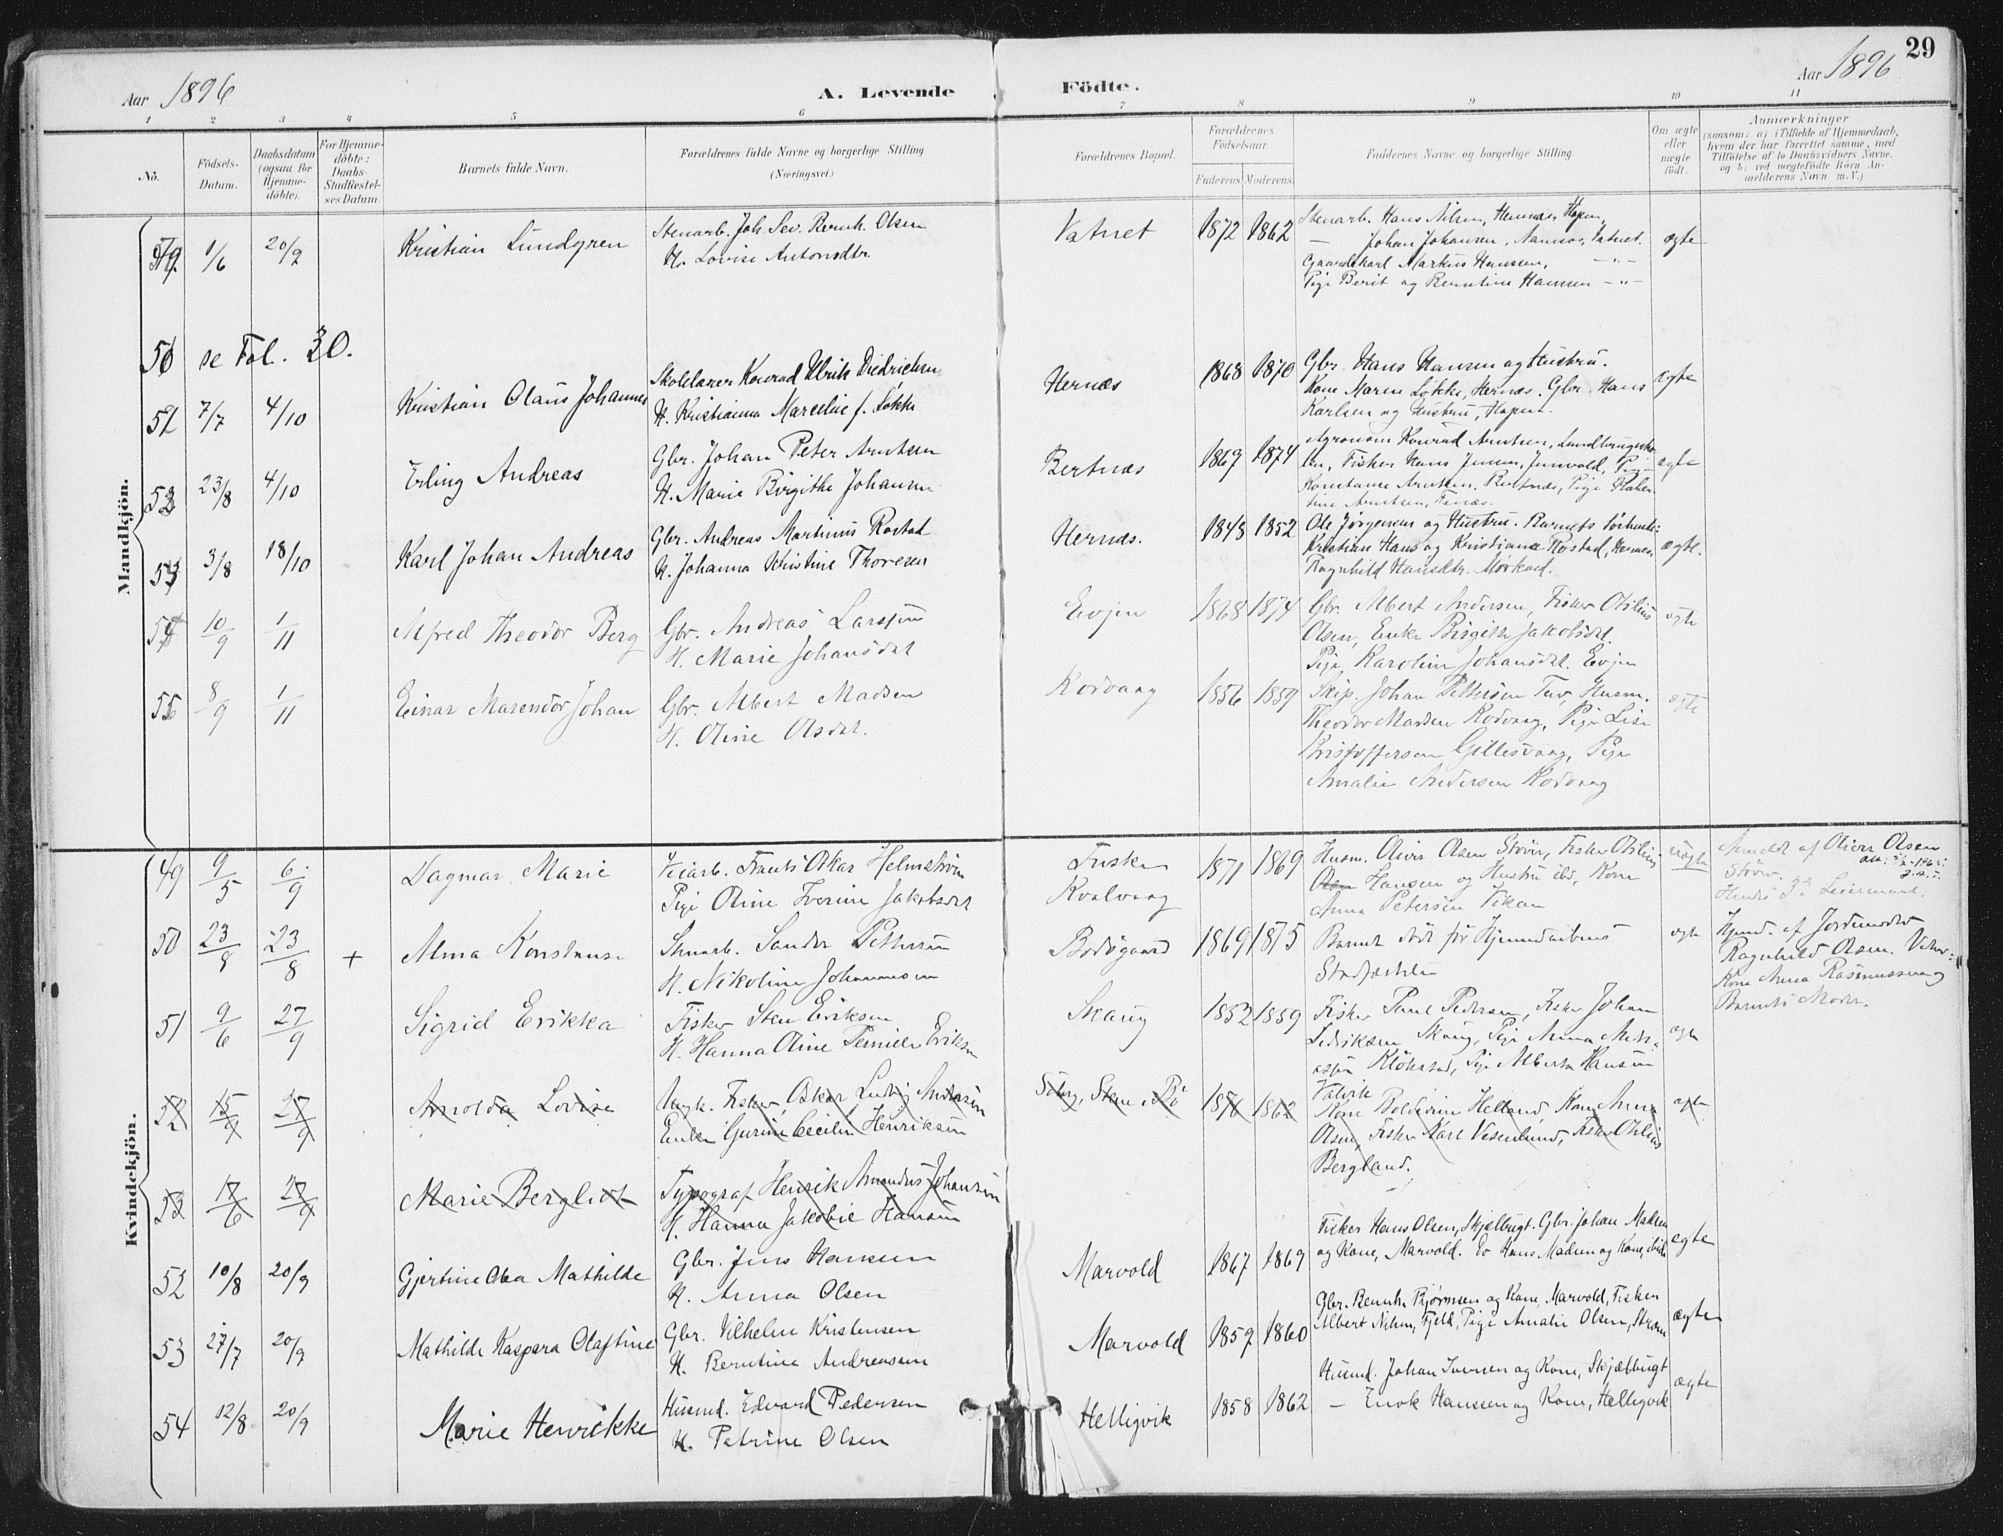 Aar 1896
A. Levende Födte.
Aar 1896
29
1 2 3 4 5 6 7 8 9 10 11
No.
Födsels-Datum.
Daabsdatum (ogsaa for Hjemmedöbte).
For Hjemmedöbte: Daabs-Stadfæstelses Datum.
Barnets fulde Navn.
Forældrenes fulde Navne og borgerlige Stilling (Næringsvei.)
Forældrenes Bopæl.
Forældrenes Födselsaar.
Faderens. Moderens.
Faddernes Navne og borgerlige Stilling.
Om ægte eller uægte födt.
Anmærkninger
(saasom: a) i Tilfælde af Hjemmedaab,
hvem der har forrettet samme, med
Tilföielse af to Daabsvidners Navne,
og b) ved uægtefödte Börn Anmelderens Navn m. V.)
Mandkjön.
49 1/6 20/9 Kristian Lundgren
Stenarb. Joh. Sev. Bernh. Olsen
H. Lovise Antonsdtr.
Vatnet 1872 1862
Stenarb. Hans Nilsen, Hernæs Hopen,
— Johan Johansen, Namsos, Vatnet.
Gaardskarl Markus Hansen, —"—
Pige Berit og Berntine Hansen —"—
ægte
50 se Fol. 30.
51 7/7 4/10 Kristian Olaus Johannes
Skolelærer Konrad Ulrik Diedrichsen
H. Kristianna Marceline f. Løkke
Hernæs 1868 1870
Gbr. Hans Hansen og Hustru.
Kone Maren Løkke, Hernæs. Gbr. Hans
Karlsen og Hustru, Hopen.
ægte
52 23/8 4/10 Erling Andreas
Gbr. Johan Peter Arntsen
H. Marie Birgithe Johansen
Bertnæs 1869 1874
Agronom Konrad Arntsen,
Fisker Hans Jensen, Junvold, Pige
Konstanse Arntsen, Bertnæs, Pige
Arntsen,
ægte
53 3/8 18/10 Karl Johan Andreas
Gbr. Andreas Martinus Rostad
H. Johanna Kristine Thoresen
Hernæs. 1848 1852
Ole Jørgensen og Hustru. Barnets
Kristian Hans og Kristiane Rostad, Hernæs,
Ragnhild Hansdtr. Mørkved.
ægte.
54 10/9 1/11 Alfred Theodor Berg
Gbr. Andreas Larssen
H. Marie Johansdat
Evjen 1868 1874
Gbr. Albert Andersen, Fisker Otilius
Olsen, Enke Birgitte Jakobsdat.
Pige Karoline Johansdat. Evjen
ægte
55 8/9 1/11 Einar Marendor Johan
Gbr. Albert Madsen
H. Oline Olsdat.
Kodvaag 1856 1859
Skip. Johan Pettersen Tuv, Husm.
Theodor Madsen Kodvaag, Pige Lise
Kristoffersen Gillesvaag, Pige
Amalie Andersen Kodvaag
ægte
Kvindekjön.
49 9/5 6/9 Dagmar Marie
Veiarb. Frants Oskar Helmstrøm
Pige Oline Iverine Jakobsdat
Fuske
Kvalvaag
1871 1869
Husm. Oliver Olsen Størvr, Fisker Otilius
Olsen Hansen og Hustru ibd, Kone
Anna Petersen Vikan
uægte
Anmeldt af Oliver Olsen
Størvr.
Hendes 1ste Leiermaal.
50 23/8 23/8 + Alma Konstanse
Stenarb. Sander Pettersen
H. Nikoline Johannesen
Bodøgaard 1869 1875
Barnet død før Hjemmedaabens
Stadfæstelse
ægte
Hjemd. af Jordemoder
Ragnhild Olsen. Vidner:
Kone Anna Rasmussen og
Barnets Moder.
51 9/6 27/9 Sigrid Erikka
Fisker Sten Eriksen
H. Hanna Oline Pernille Eriksen
Skaug 1852 1859
Fisker Paul Pedersen, Fisker Johan
Didriksen Skaug, Pige Anna
Kløkstad, Pige Alberta Hansen
Valvik
ægte
52 15/9 27/9 Arnolda Lovise
Ungk. Fisker Oskar Ludvig Andersen
Enke Gurine Cecilie Henriksen
1870 1862
Kone Boldrine Helland, Kone Anna
Olsen, Fisker Karl Vesenlund, Fisker Otilius
Bergland.
ægte
53 17/6 27/9 Marie Bergliot
Typograf Henrik Amandus Johansen
H. Hanna Jakobie Hansen
52 10/8 20/9 Gjertine Olea Mathilde
Gbr. Jens Hansen
H. Anna Olsen
Marvold 1867 1869
Fisker Hans Olsen, Skjælbugt. Gbr. Johan Madsen
og Kone, Marvold. Hans Madsen og Kone, ibid.
ægte
53 27/7 20/9 Mathilde Kaspara Olaftine
Gbr. Vilhelm Kristensen
H. Berntine Andreassen
Marvold 1859 1860
Gbr. Bernh. Bjørnsen og Kone, Marvold, Fisker
Albert Nilsen, Fjell, Pige Amalie Olsen, Strøm
ægte
54 12/8 20/9 Marie Henrikke
Husmd. Edvard Pedersen
H. Petrine Olsen
Helligvik 1858 1862
Husmd. Johan Iversen og Kone, Skjælbugt
— Enok Hanssen og Kone, Helligvik
ægte